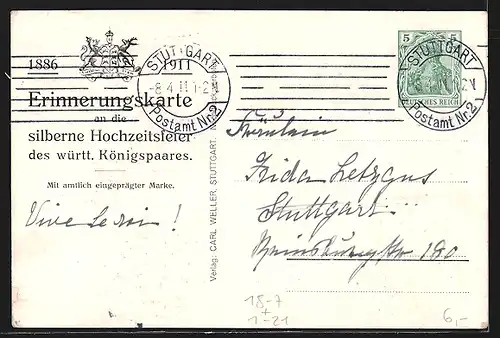 1886 1911
Erinnerungskarte
an die
silberne Hochzeitsfeier
des württ. Königspaares.
Mit amtlich eingeprägter Marke.
Vive le roi!
STUTTGART
-8.4.11.1-2N
Postamt Nr.2
5 5
DEUTSCHES REICH
STUTTGART
2N
Postamt Nr.2
Verlag: CARL WELLER, STUTTGART
Fräulein
Frida Letzgus
Stuttgart
Reinsburgstr 180
18-7
+
1-21
6,-